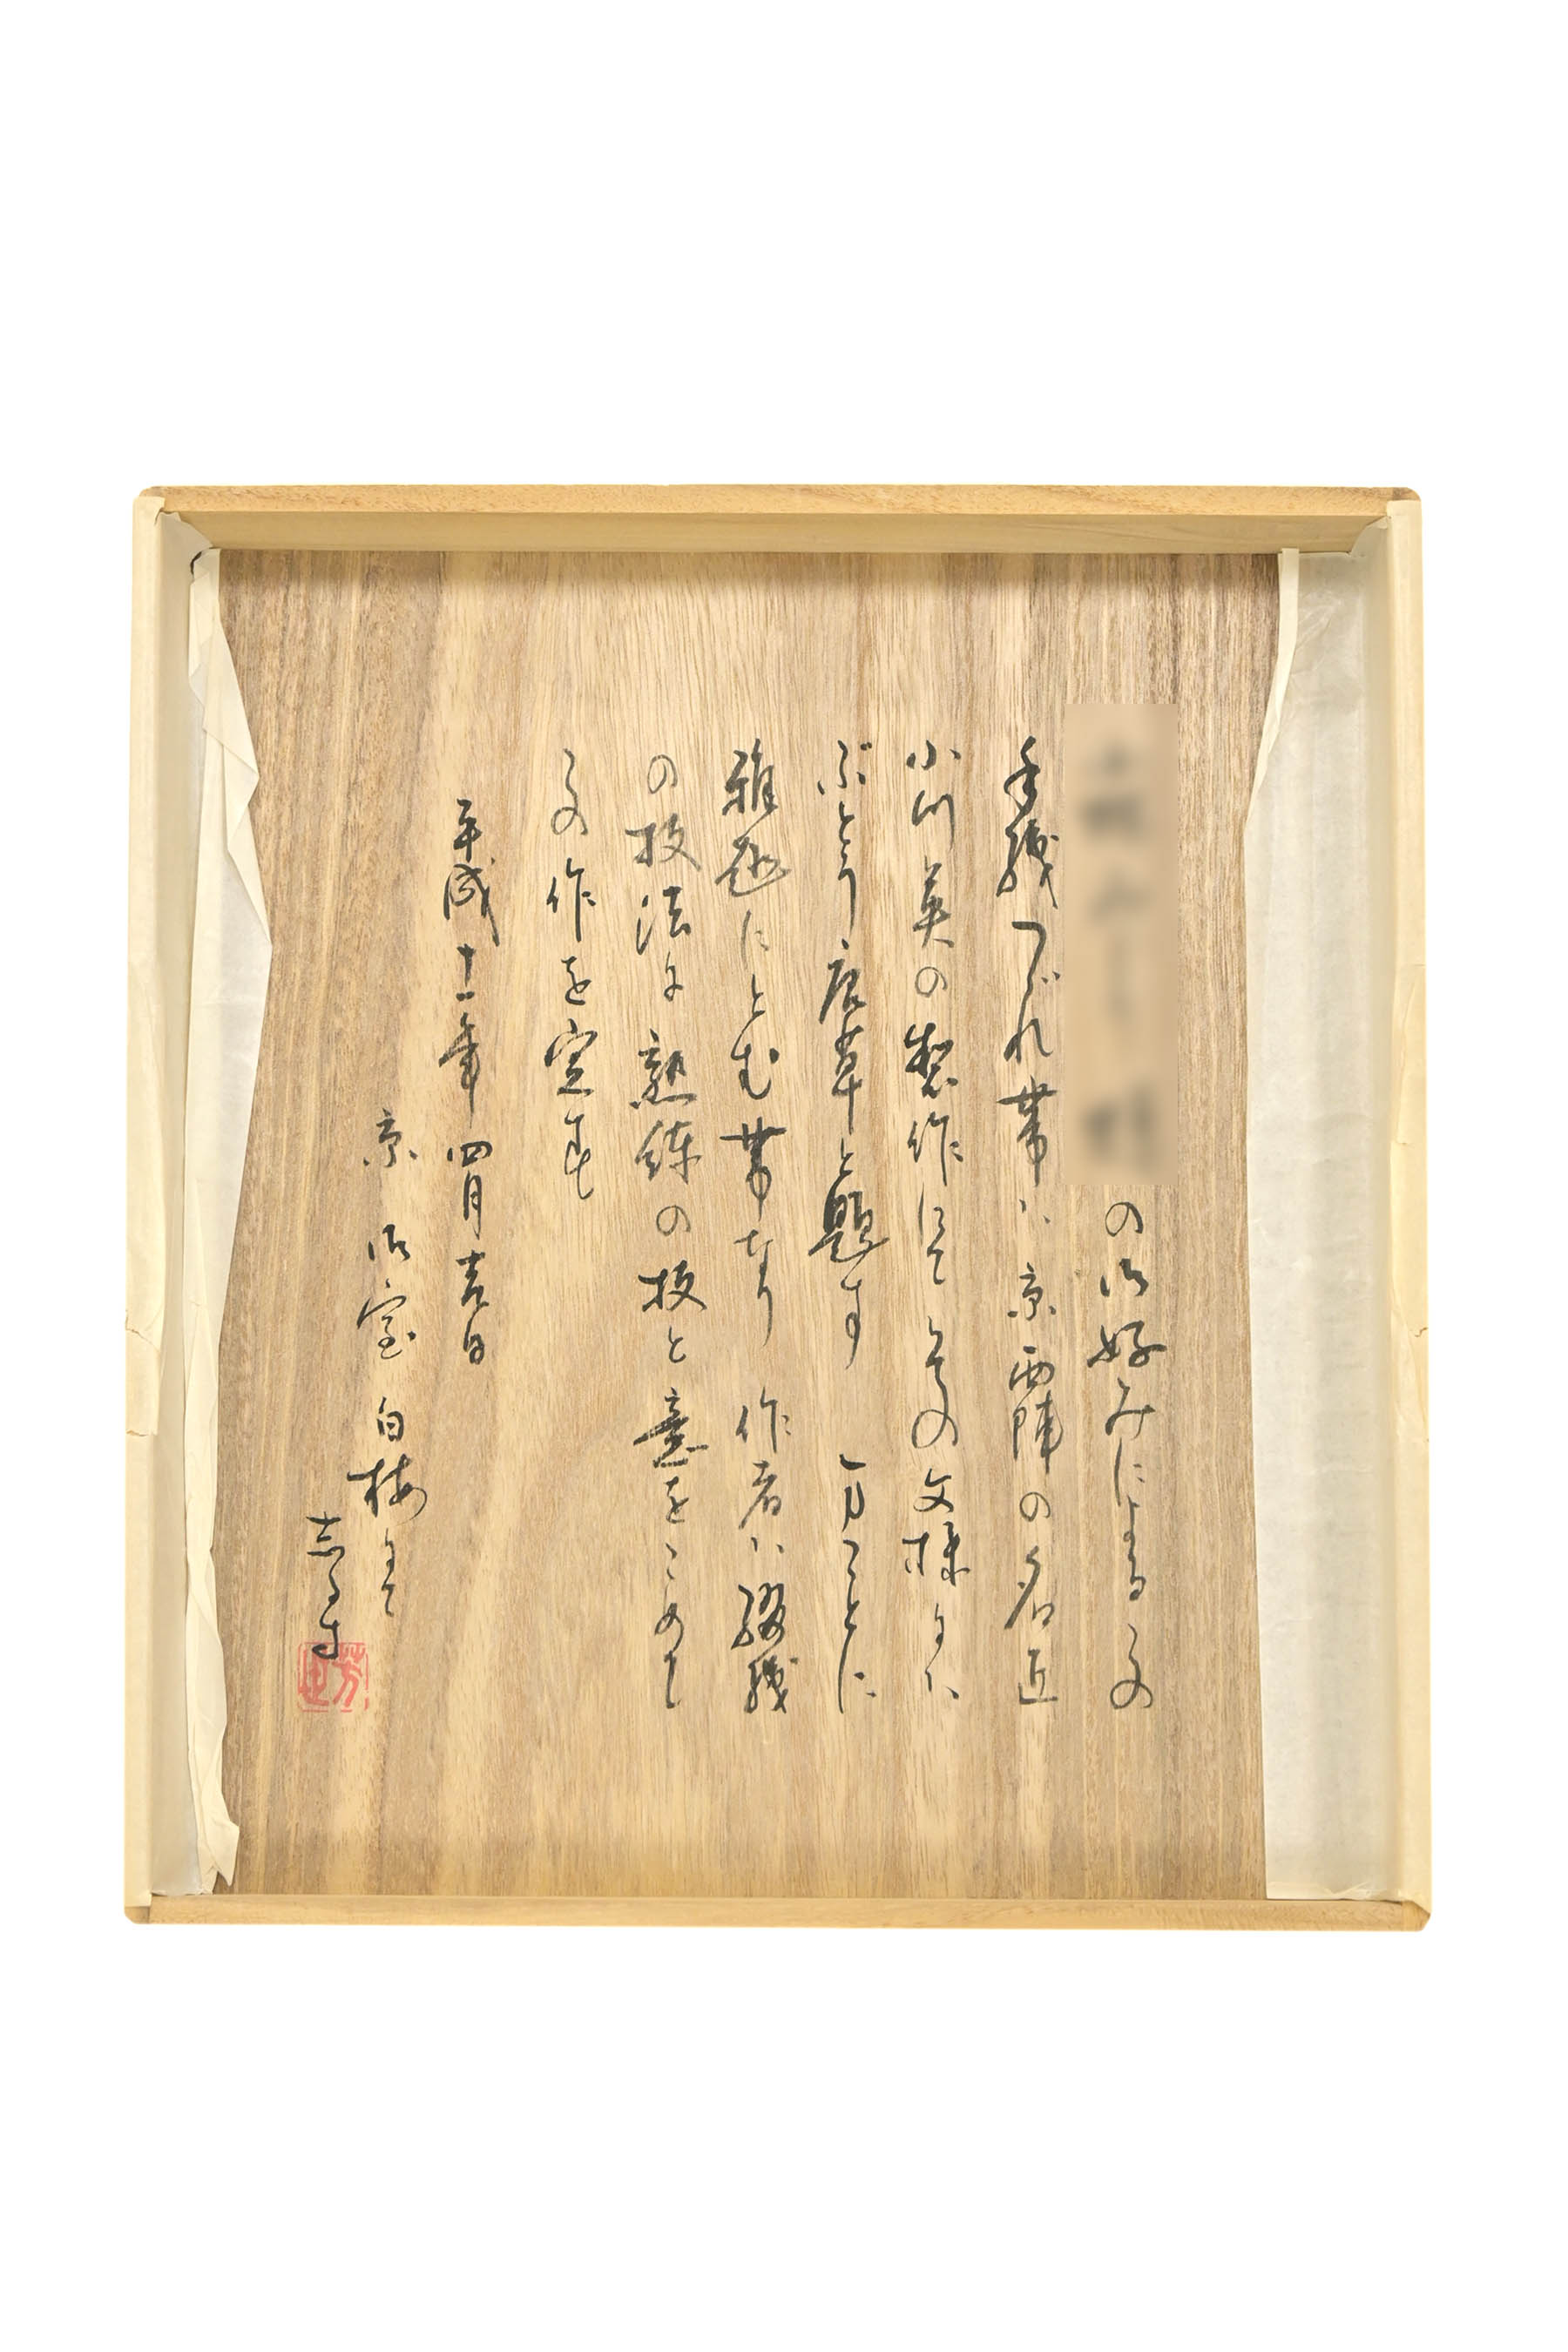 の御好みによるこの
手織つづれ帯は京西陣の名匠
小川英の製作にてその文様には
ぶどう唐草と題す まことに
雅趣にとむ帯なり 作者は綴織
の技法に熟練の技と意をこめて
この作を完す
平成十一年四月吉日
京 御室 白梅にて
志るす
芳